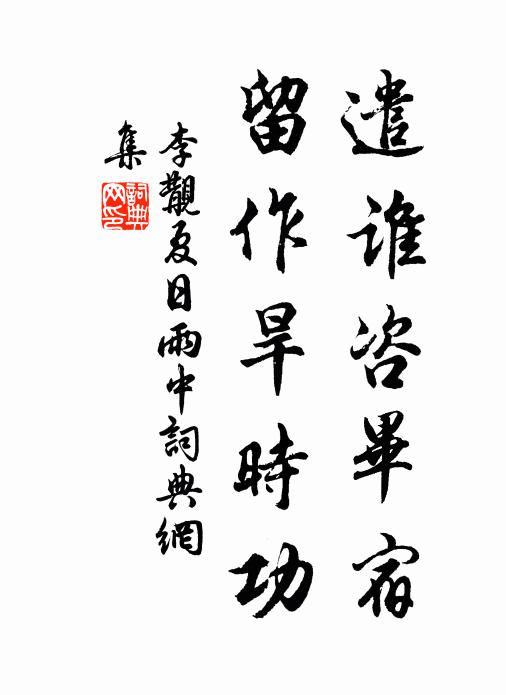 遣誰咨畢宿
留作旱時功
李觏夏日雨中詞典網
集
詞典
网印